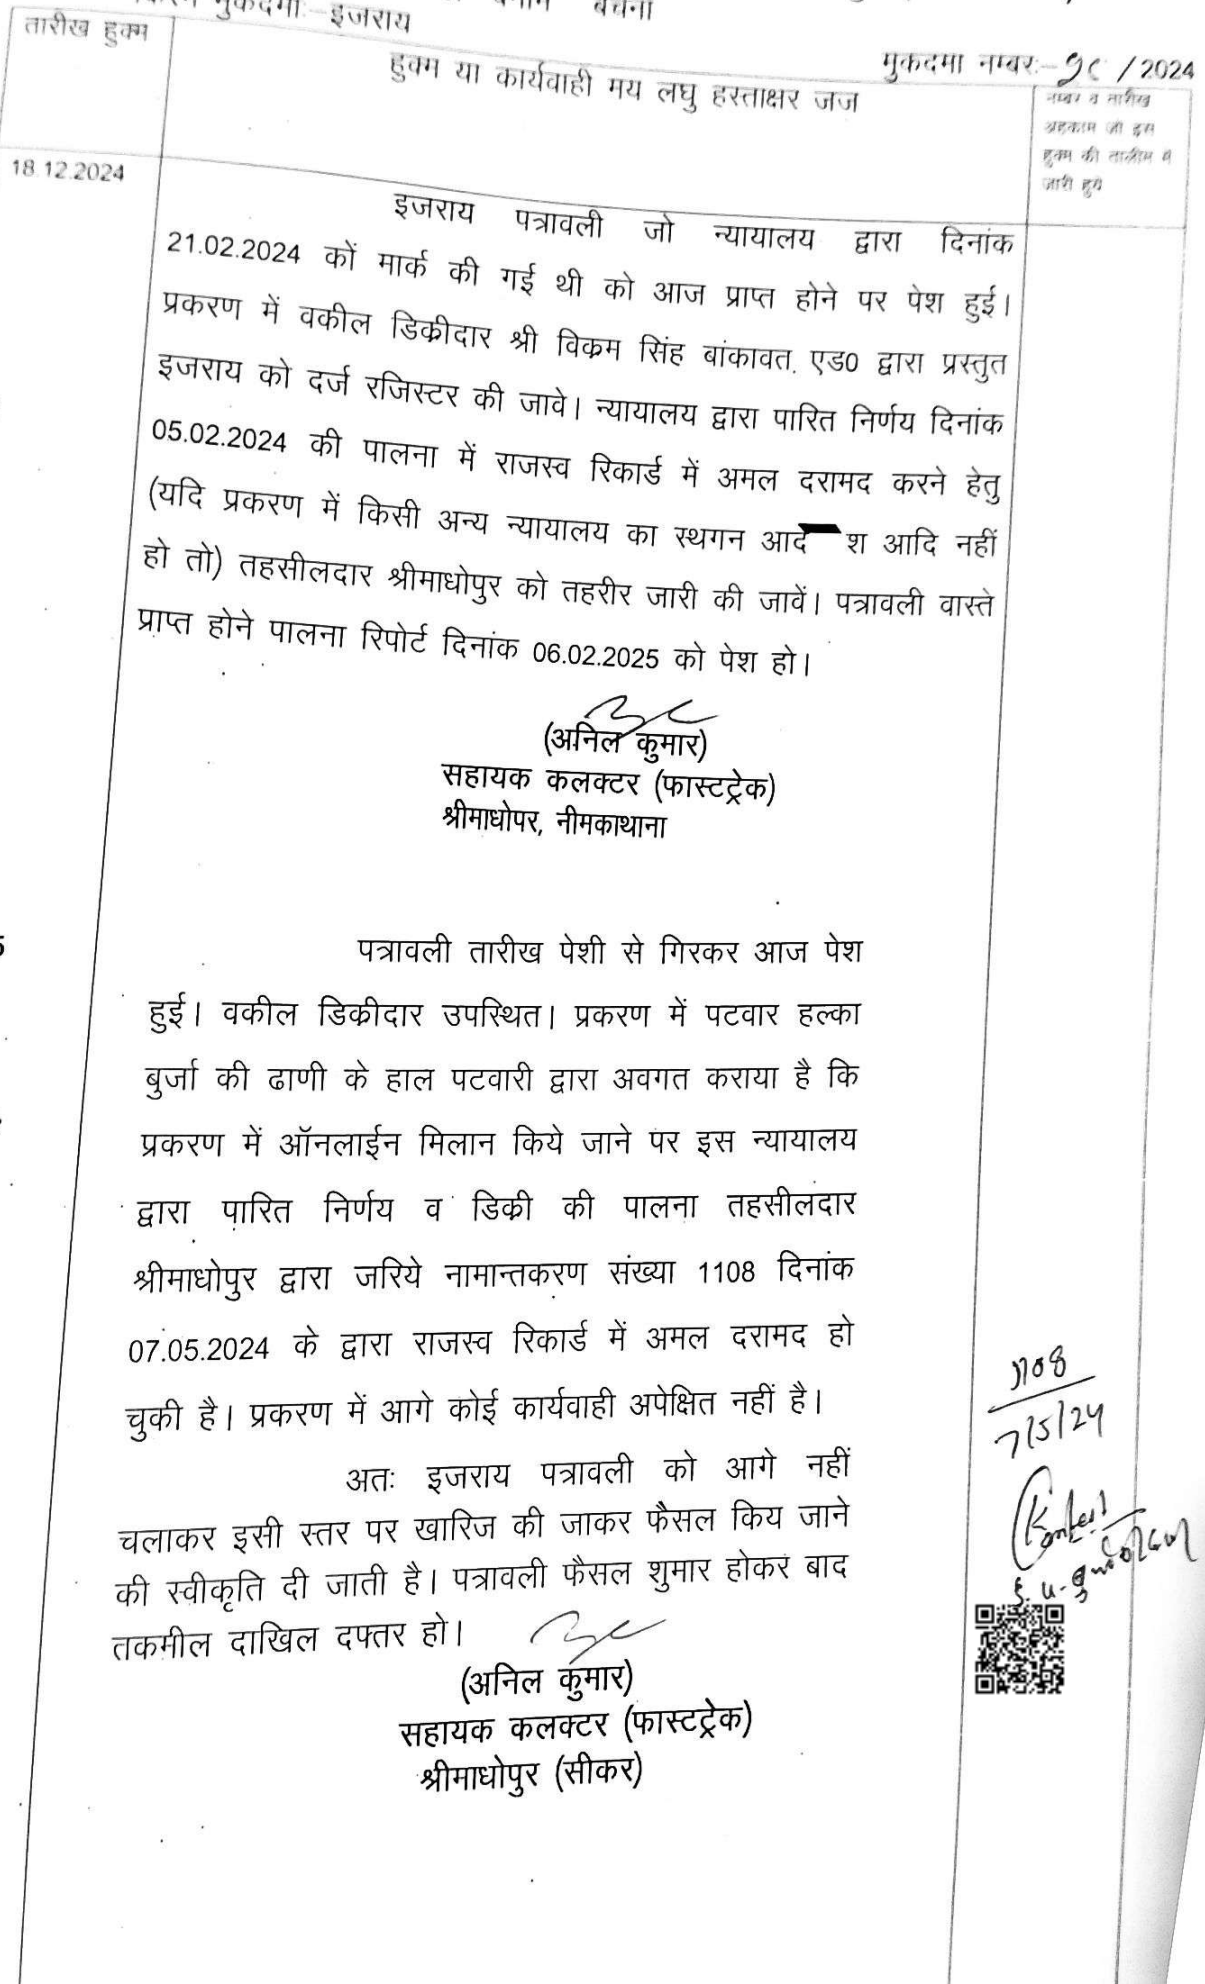 मुकदमा:-इजराय
बनाम बचना
मुकदमा नम्बर:- /2024
तारीख हुक्म
हुक्म या कार्यवाही मय लघु हस्ताक्षर जज
नम्बर व तारीख
अहकाम जो इस
हुक्म की तालीम मे
जारी हुये
18.12.2024
इजराय पत्रावली जो न्यायालय द्वारा दिनांक
21.02.2024 कों मार्क की गई थी को आज प्राप्त होने पर पेश हुई।
प्रकरण में वकील डिक्रीदार श्री विक्रम सिंह बांकावत. एड0 द्वारा प्रस्तुत
इजराय को दर्ज रजिस्टर की जावे। न्यायालय द्वारा पारित निर्णय दिनांक
05.02.2024 की पालना में राजस्व रिकार्ड में अमल दरामद करने हेतु
(यदि प्रकरण में किसी अन्य न्यायालय का स्थगन आदे श आदि नहीं
हो तो) तहसीलदार श्रीमाधोपुर को तहरीर जारी की जावें। पत्रावली वास्ते
प्राप्त होने पालना रिपोर्ट दिनांक 06.02.2025 को पेश हो।
(अनिल कुमार)
सहायक कलक्टर (फास्टट्रेक)
श्रीमाधोपर, नीमकाथाना
पत्रावली तारीख पेशी से गिरकर आज पेश
हुई। वकील डिक्रीदार उपस्थित। प्रकरण में पटवार हल्का
बुर्जा की ढाणी के हाल पटवारी द्वारा अवगत कराया है कि
प्रकरण में ऑनलाईन मिलान किये जाने पर इस न्यायालय
द्वारा पारित निर्णय व डिक्री की पालना तहसीलदार
श्रीमाधोपुर द्वारा जरिये नामान्तकरण संख्या 1108 दिनांक
07.05.2024 के द्वारा राजस्व रिकार्ड में अमल दरामद हो
चुकी है। प्रकरण में आगे कोई कार्यवाही अपेक्षित नहीं है।
1108
7/5/24
अतः इजराय पत्रावली को आगे नहीं
चलाकर इसी स्तर पर खारिज की जाकर फैसल किय जाने
की स्वीकृति दी जाती है। पत्रावली फैसल शुमार होकर बाद
तकमील दाखिल दफ्तर हो।
(अनिल कुमार)
सहायक कलक्टर (फास्टट्रेक)
श्रीमाधोपुर (सीकर)